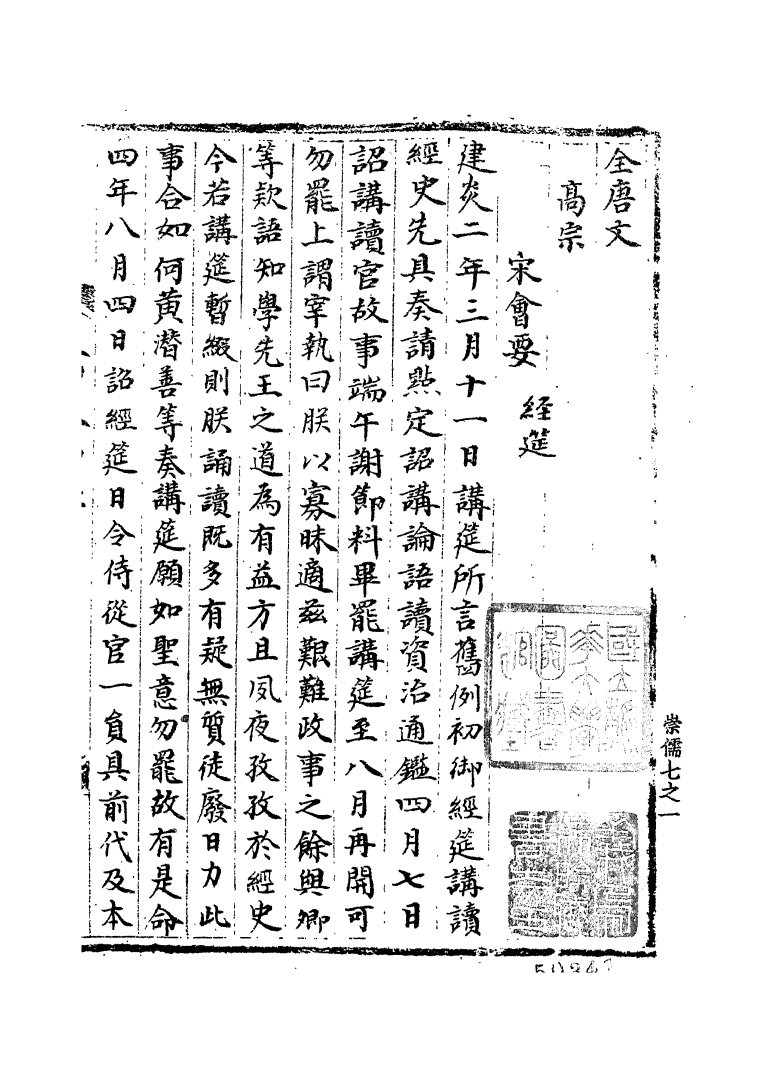 全唐文
高宗
宋會要　經筵
建炎二年三月十一日講筵所言舊例初御經筵講讀
經史先具奏請點定詔講論語讀資治通鑑四月七日
詔講讀官故事端午謝節料畢罷講筵至八月再開可
勿罷上謂宰執曰朕以寡昧適茲艱難政事之餘與卿
等欵語知學先王之道為有益方且夙夜孜孜於經史
今若講筵暫綴則朕誦讀既多有疑無質徒廢日力此
事合如何黃潛善等奏講筵願如聖意勿罷故有是命
四年八月四日詔經筵日令侍從官一員具前代及本
崇儒七之一